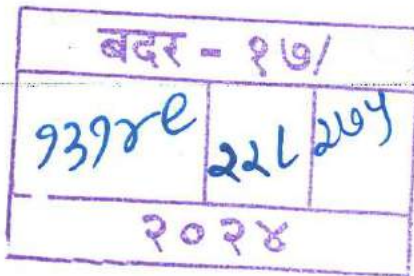 बदर - १७/
१३१४९ २२८ २७५
२०२४